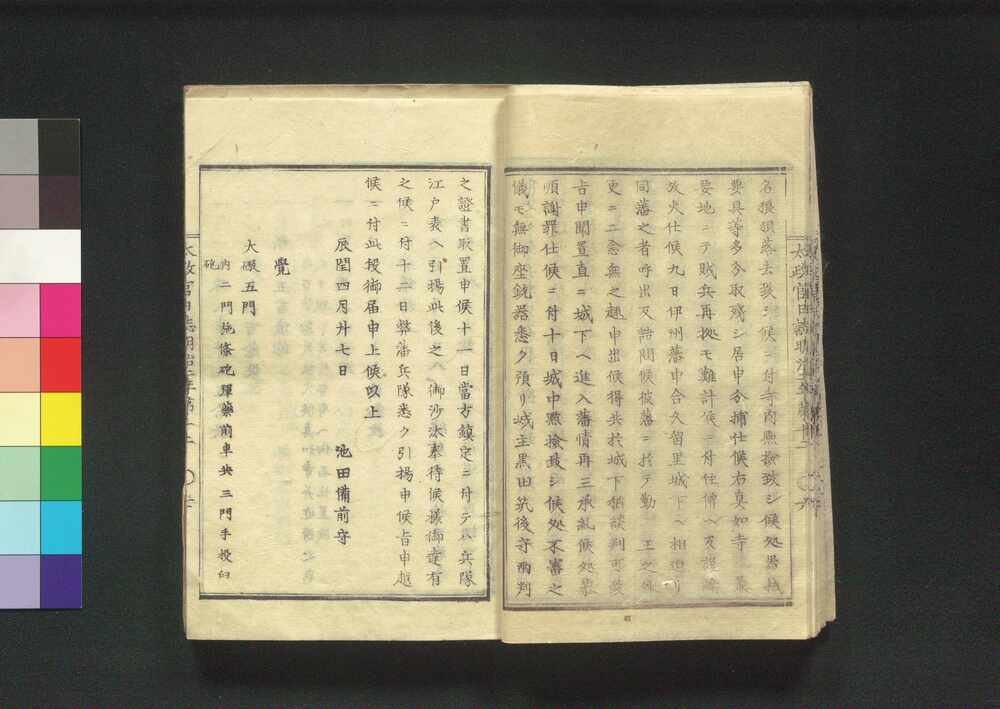 名狼狽落去致シ候ニ付寺内点検致シ候処器械
要具等多分取残シ居申分捕仕候右真如寺
要地ニテ賊兵再拠モ難計候ニ付仕備ヘ
次火仕候九日伊州藩申合久留里城下ヘ相迫リ
同藩之者呼出又詰問候彼藩ニ於テ勤 王之外
更ニ二念無之趣申出候得共於城下猶談判可致
古申聞置直ニ城下ヘ進入藩情再三承糺候処
順謝罪仕候ニ付十日城中點撿致シ候処不審之
儀モ無御座銃器悉ク預リ城主黒田筑後守両判
太政官日誌明治
之證書取置申候十一日當方鎮定ニ付テハ兵隊
江戸表ヘ引揚此後之 御沙汰奉待候様御達有
之候ニ付十二日弊藩兵隊悉ク引揚申候旨申越
候ニ付此段御届申上候以上
辰閏四月廿七日 池田備前守
覺
大礮五門
内二門施條砲彈藥前車共三門手投臼
砲
太政官日誌明治二年第